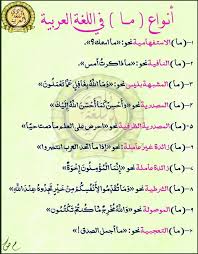 أنواع ( ما ) في اللغة العربية
١-(ما) الاستفهامية نحو: «ما معك؟».
٢-(ما) النافية نحو: «ما ذاكرت أمس».
٣-(ما) المشبهة بليس نحو: «وَمَا اللَّهُ بِغَافِلٍ عَمَّا تَعْمَلُونَ»
٤-(ما) المصدرية نحو: «وَأَحْسِنْ كَمَا أَحْسَنَ اللَّهُ إِلَيْكَ»
٥-(ما) المصدرية الظرفية نحو: «احرص على العلم ما دمت حيًا»
٦-(ما) زائدة غير عاملة نحو: «إذا ما اتحد العرب انتصروا»
٧-(ما) زائدة عاملة نحو: «إِنَّمَا الْمُؤْمِنُونَ إِخْوَةٌ»
٨-(ما) الشرطية نحو: «وَمَا تُقَدِّمُوا لِأَنْفُسِكُمْ مِنْ خَيْرٍ تَجِدُوهُ عِنْدَ اللَّهِ»
٩-(ما) الموصولة نحو: «وَاللَّهُ مُخْرِجٌ مَا كُنْتُمْ تَكْتُمُونَ»
-(ما) التعجبية نحو: «ما أجمل الصدق!»